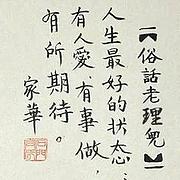 【俗話老理兒】
人生最好的状态：
有人愛、有事做，
有所期待。
家華